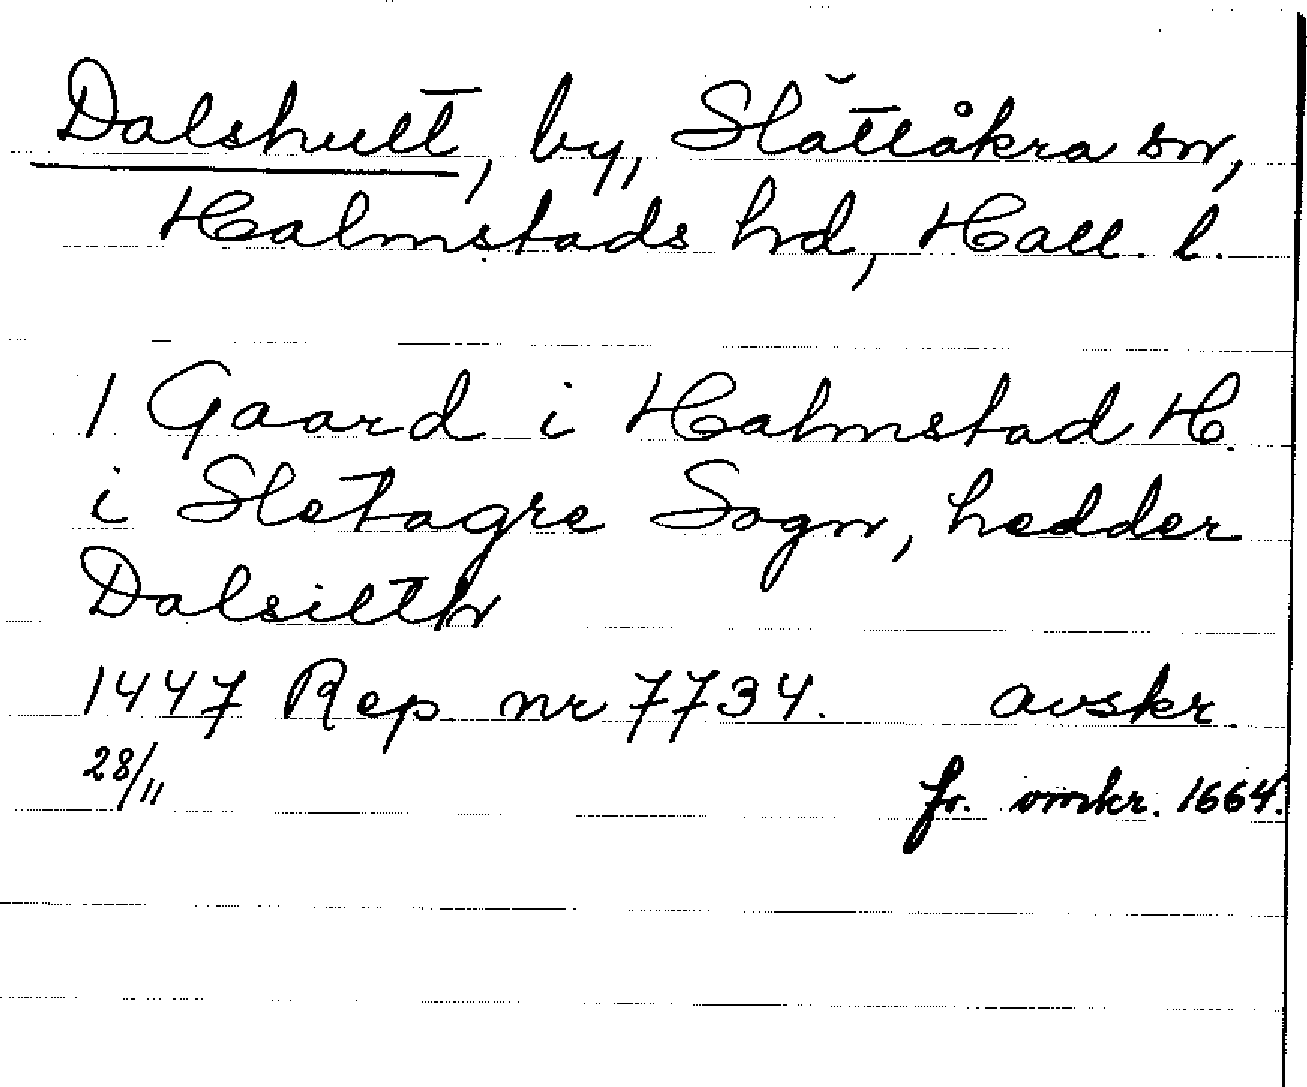 Dalshult, by, Slättåkra sn,
Halmstads hd, Hall. l.
1 Gaard i Halmstad H.
i Sletagre Sogn, hedder
Dalsiltħ
1447 Rep nr 7734. avskr.
28/11 fr. omkr. 1664.